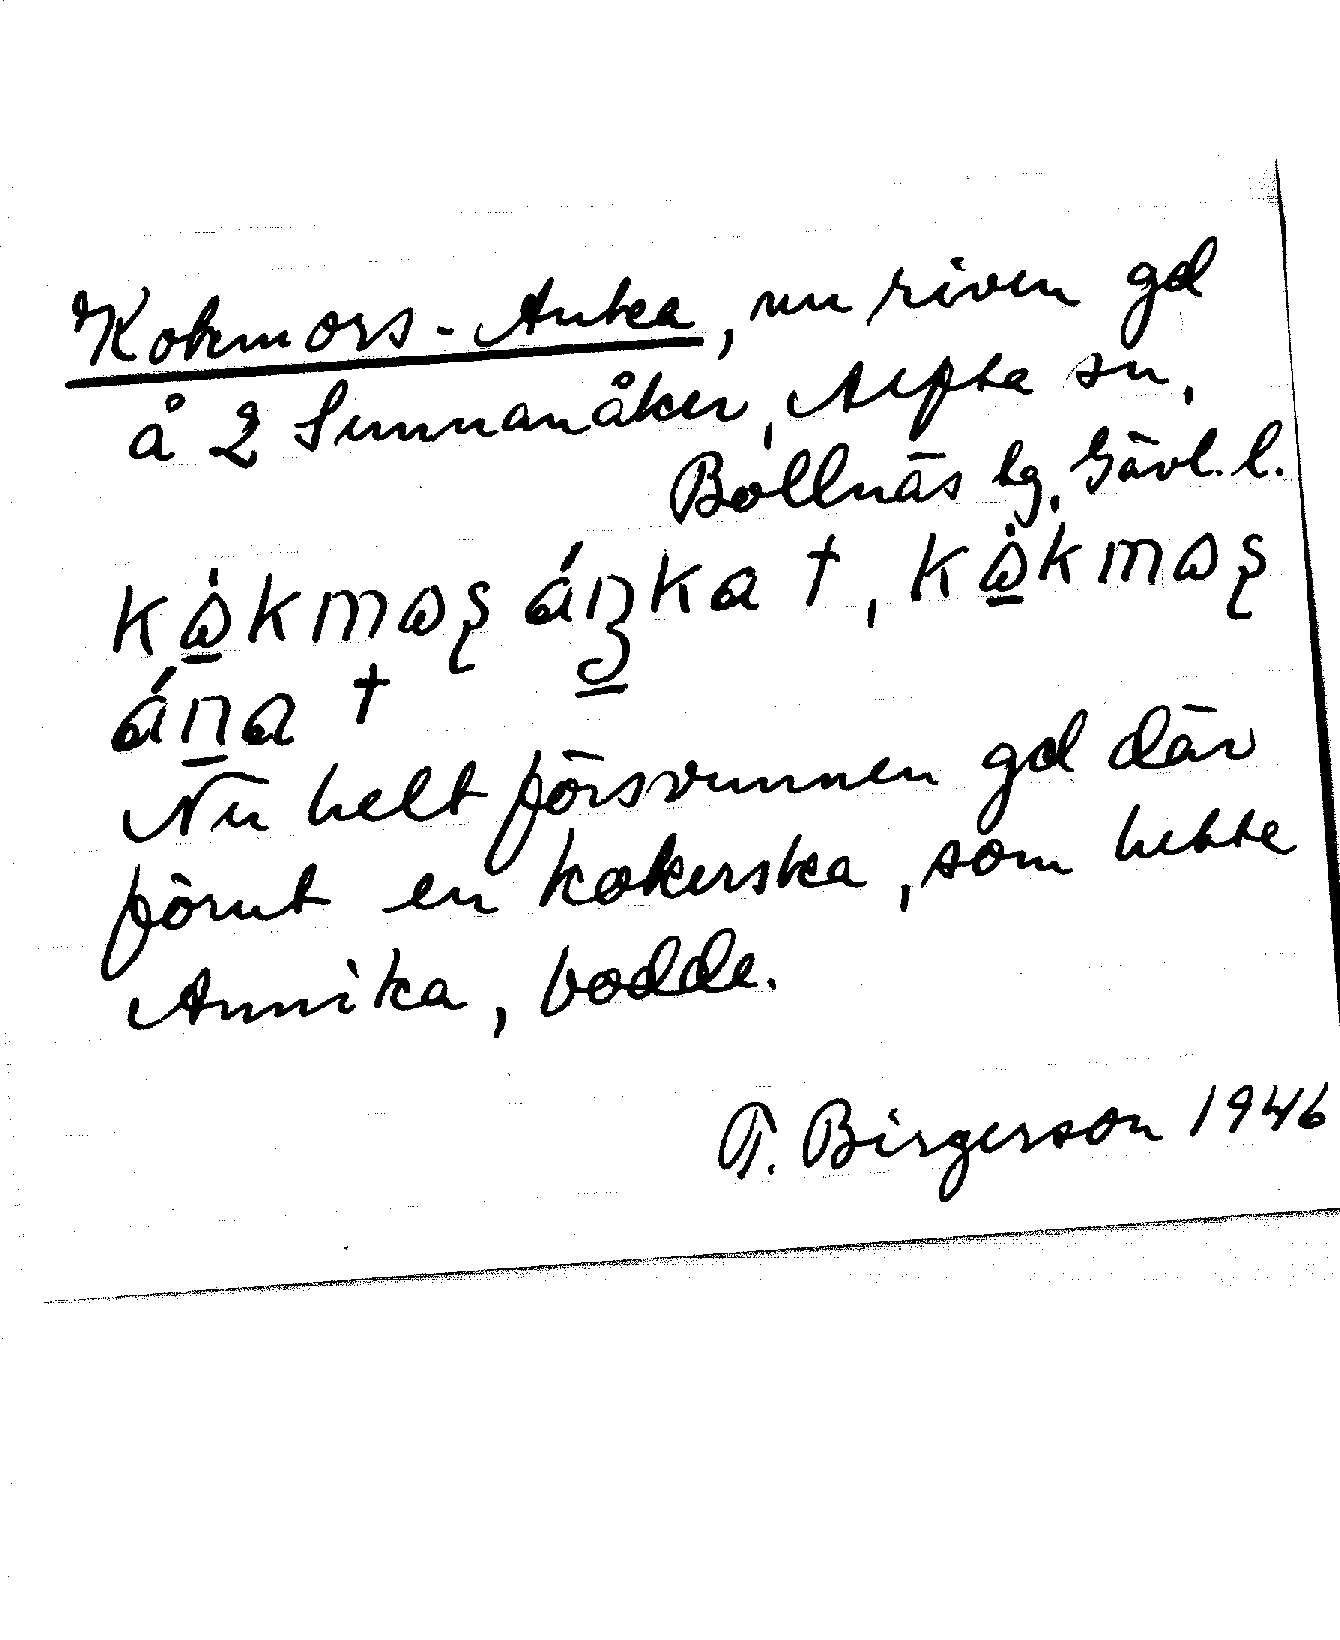 Kokmors-Anka, nu riven gd
å 2 Sunnanåker, Alfta sn,
Bollnäs lg, Gävl. l.
kåkmoʂ áŋka †, kåkmoʂ
ána †
Nu helt försvunnen gd där
förut en kokerska, som hette
Annika, bodde.
T. Birgerson 1946